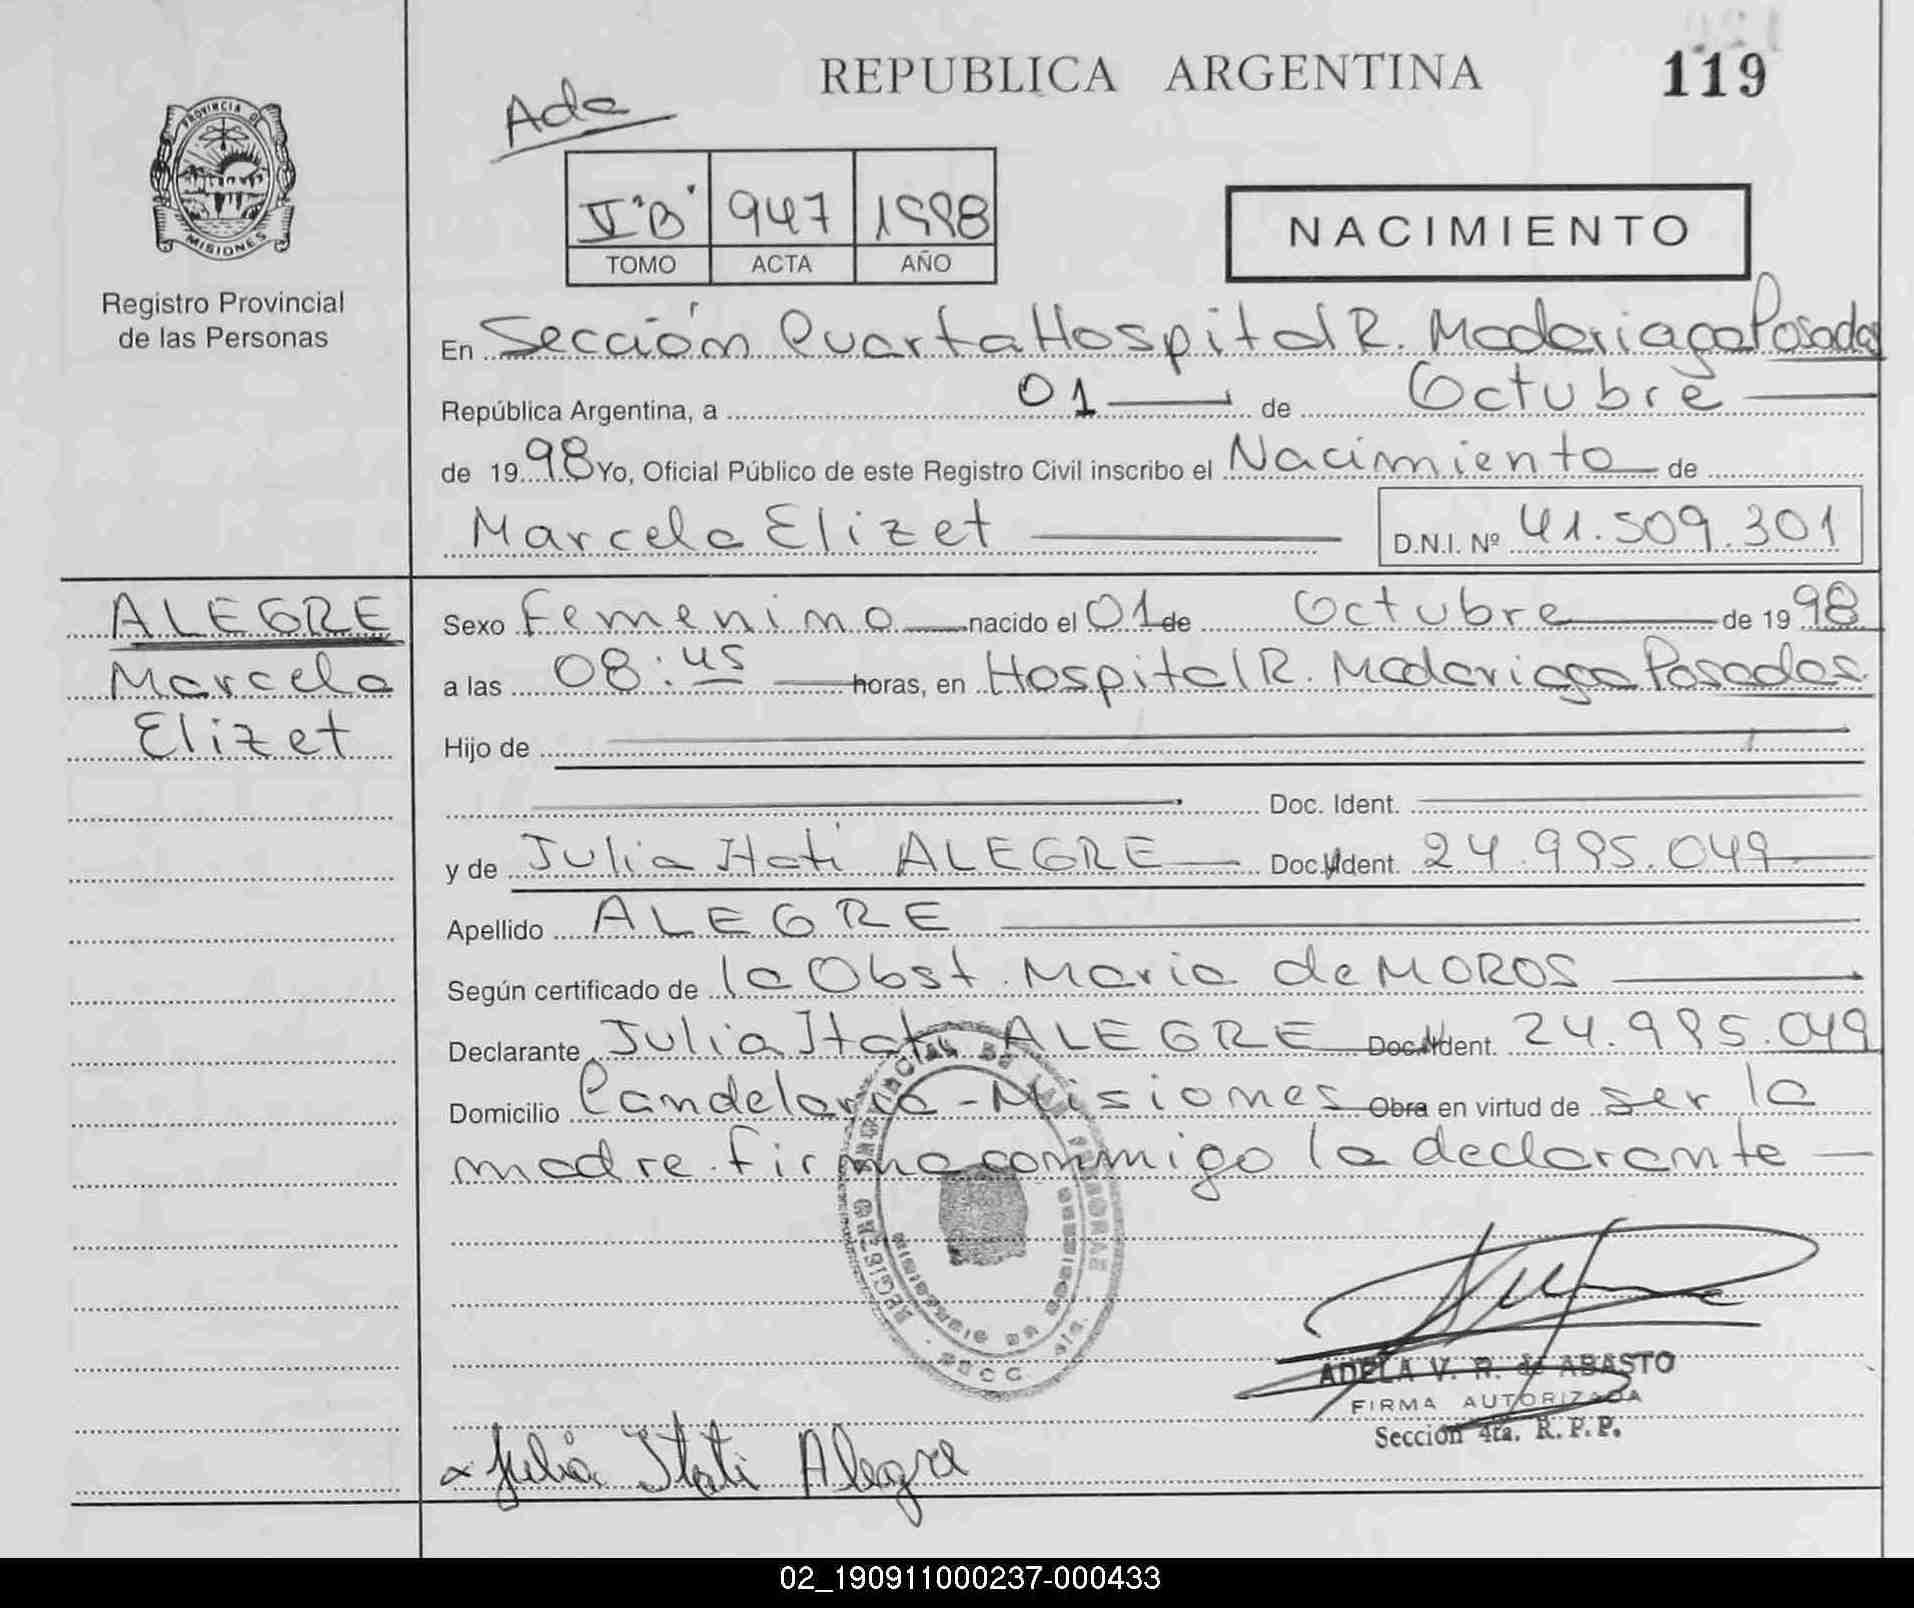 REPUBLICA ARGENTINA 119
Ada
PROVINCIA DE
MISIONES
Registro Provincial
de las Personas
"B" 947 1998
TOMO ACTA AÑO
NACIMIENTO
En Sección Cuarta Hospital R. Madariaga Posadas
República Argentina, a 01 de Octubre
de 1998 Yo, Oficial Público de este Registro Civil inscribo el Nacimiento de
Marcela Elizet D.N.I. Nº 41.509.301
ALEGRE
Marcela
Elizet
Sexo Femenino nacido el 01 de Octubre de 1998
a las 08:45 horas, en Hospital R. Madariaga Posadas.
Hijo de
Doc. Ident.
y de Julia Itati ALEGRE Doc. Ident. 24.995.049
Apellido ALEGRE
Según certificado de la Obst. Maria de MOROS
Declarante Julia Itati ALEGRE Doc. Ident. 24.995.049
Domicilio Candelaria - Misiones Obra en virtud de ser la
madre. firma conmigo la declarante
ADELA V. R. de ABASTO
FIRMA AUTORIZADA
Sección 4ta. R. P. P.
Julia Itati Alegre
02_190911000237-000433